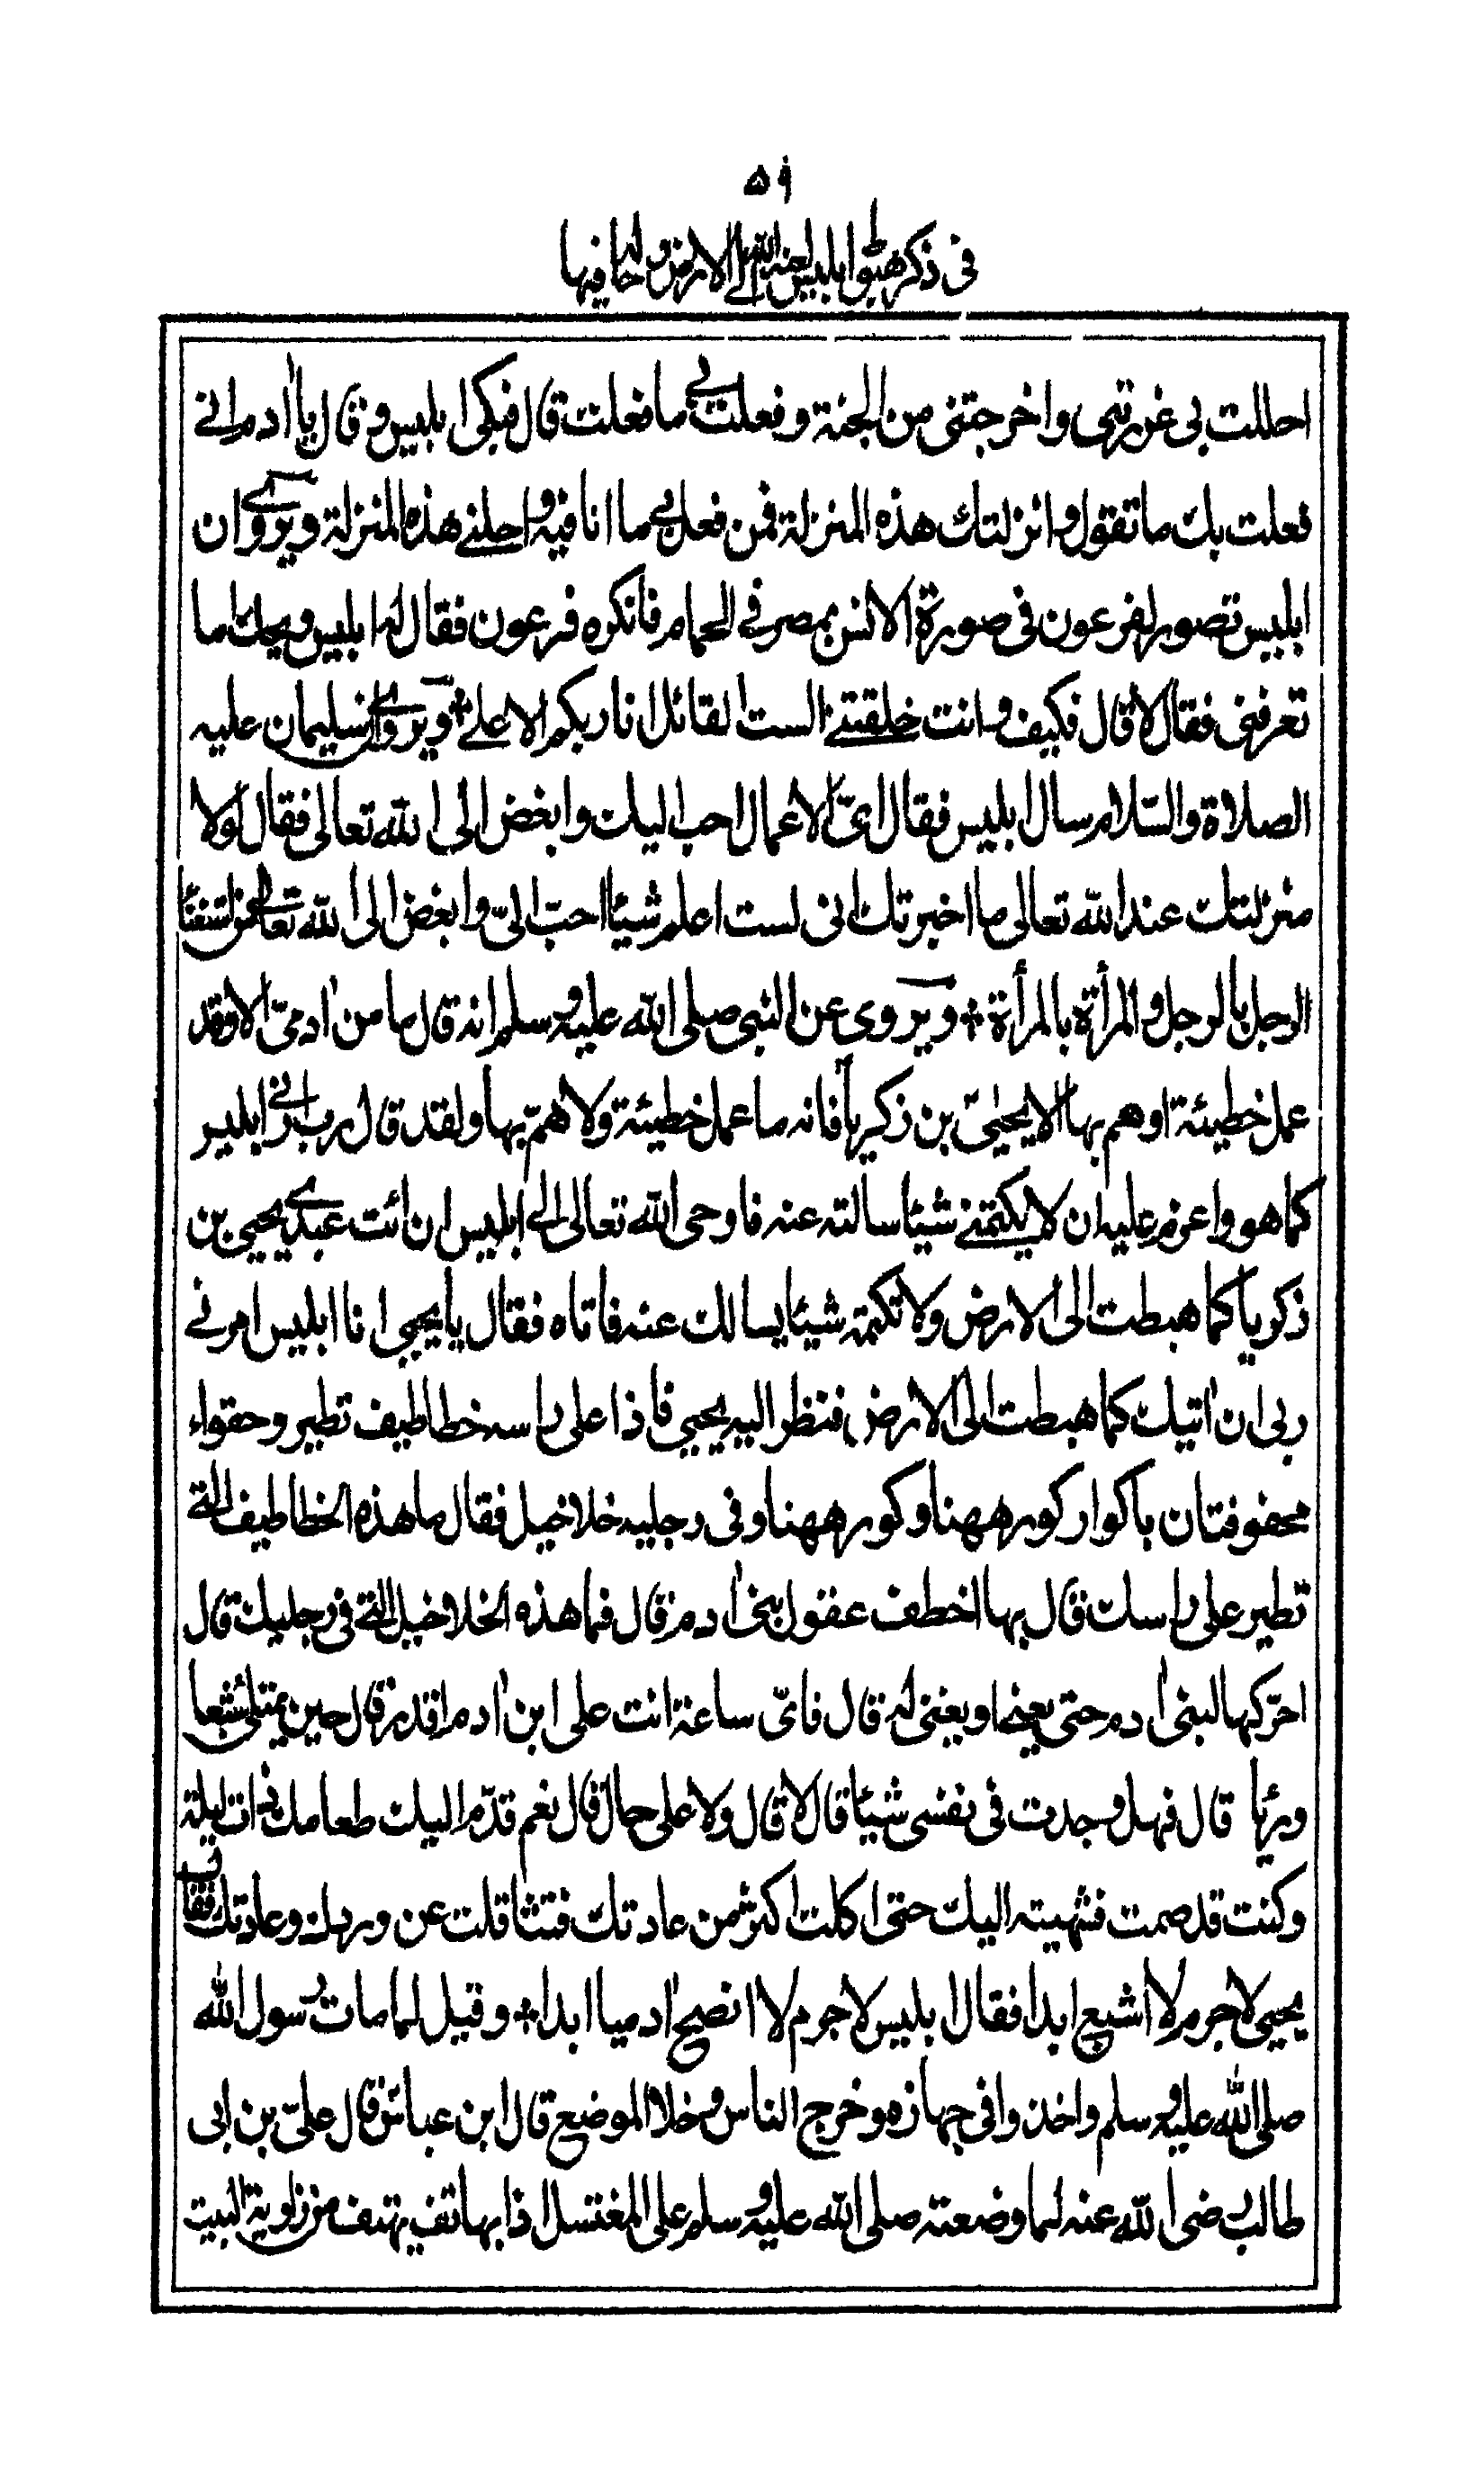 ٥٩
في ذكر هبوط ابليس لعنه الله الى الارض وحاله فيها
احللت بي غررتني واخرجتني من الجنة وفعلت بي ما فعلت قال فبكى ابليس وقال يا اٰدم اني
فعلت بك ما تقول وانزلتك هذه المنزلة فمن فعل بي ما انا فيه واحلني هذه المنزلة ويروى ان
ابليس تصور لفرعون في صورة الانس بمصر في الحمام فانكره فرعون فقال له ابليس ويحك اما
تعرفني فقال لا قال فكيف وانت خلقتني الست القائل انا ربكم الاعلى ٭ ويروى ان سليمان عليه
الصلاة والسّلام سال ابليس فقال ايّ الاعمال احب اليك وابغض الى الله تعالى فقال لولا
منزلتك عند الله تعالى ما اخبرتك اني لست اعلم شيئا احبّ اليّ وابغض الى الله تعالى من استغناء
الرجل بالرجل والمرأة بالمرأة ٭ ويروى عن النبي صلى الله عليه وسلم انه قال ما من اٰدميّ الا وقد
عمل خطيئة او هم بها الا يحيىٰ بن زكريا فانه ما عمل خطيئة ولا همّ بها ولقد قال رب ارني ابليس
كما هو واعزم عليه ان لا يكتمني شيئا سالته عنه فاوحى الله تعالى الى ابليس ان ائت عبدي يحيى بن
زكريا كما هبطت الى الارض ولا تكتمه شيئا يسالك عنه فاتاه فقال يا يحيى انا ابليس امرني
ربي ان اٰتيك كما هبطت الى الارض فنظر اليه يحيى فاذا على راسه خطاطيف تطير وحقواه
محفوفتان باكوار كور ههنا وكور ههنا وفي رجليه خلاخيل فقال ما هذه الخطاطيف التي
تطير على راسك قال بها اخطف عقول بني اٰدم قال فما هذه الخلاخيل التي في رجليك قال
احرّكها لبني اٰدم حتى يغني او يغنى له قال فايّ ساعة انت على ابن اٰدم اقدر قال حين يمتلئ شبعا
وريّا قال فهل وجدت في نفسي شيئا قال لا قال ولا على حال قال نعم قدّم اليك طعامك ذات ليلة
وكنت قد صمت فشهيته اليك حتى اكلت اكثر من عادتك فتثاقلت عن وردك وعادتك فقال
يحيى لا جرم لا اشبع ابدا فقال ابليس لا جرم لا انصح اٰدميا ابدا ٭ وقيل لما مات رسول الله
صلى الله عليه وسلم واخذوا في جهازه وخرج الناس وخلا الموضع قال ابن عباس قال عليّ بن ابي
طالب رضي الله عنه لما وضعته صلى الله عليه وسلم على المغتسل اذا بهاتف يهتف من زاوية البيت